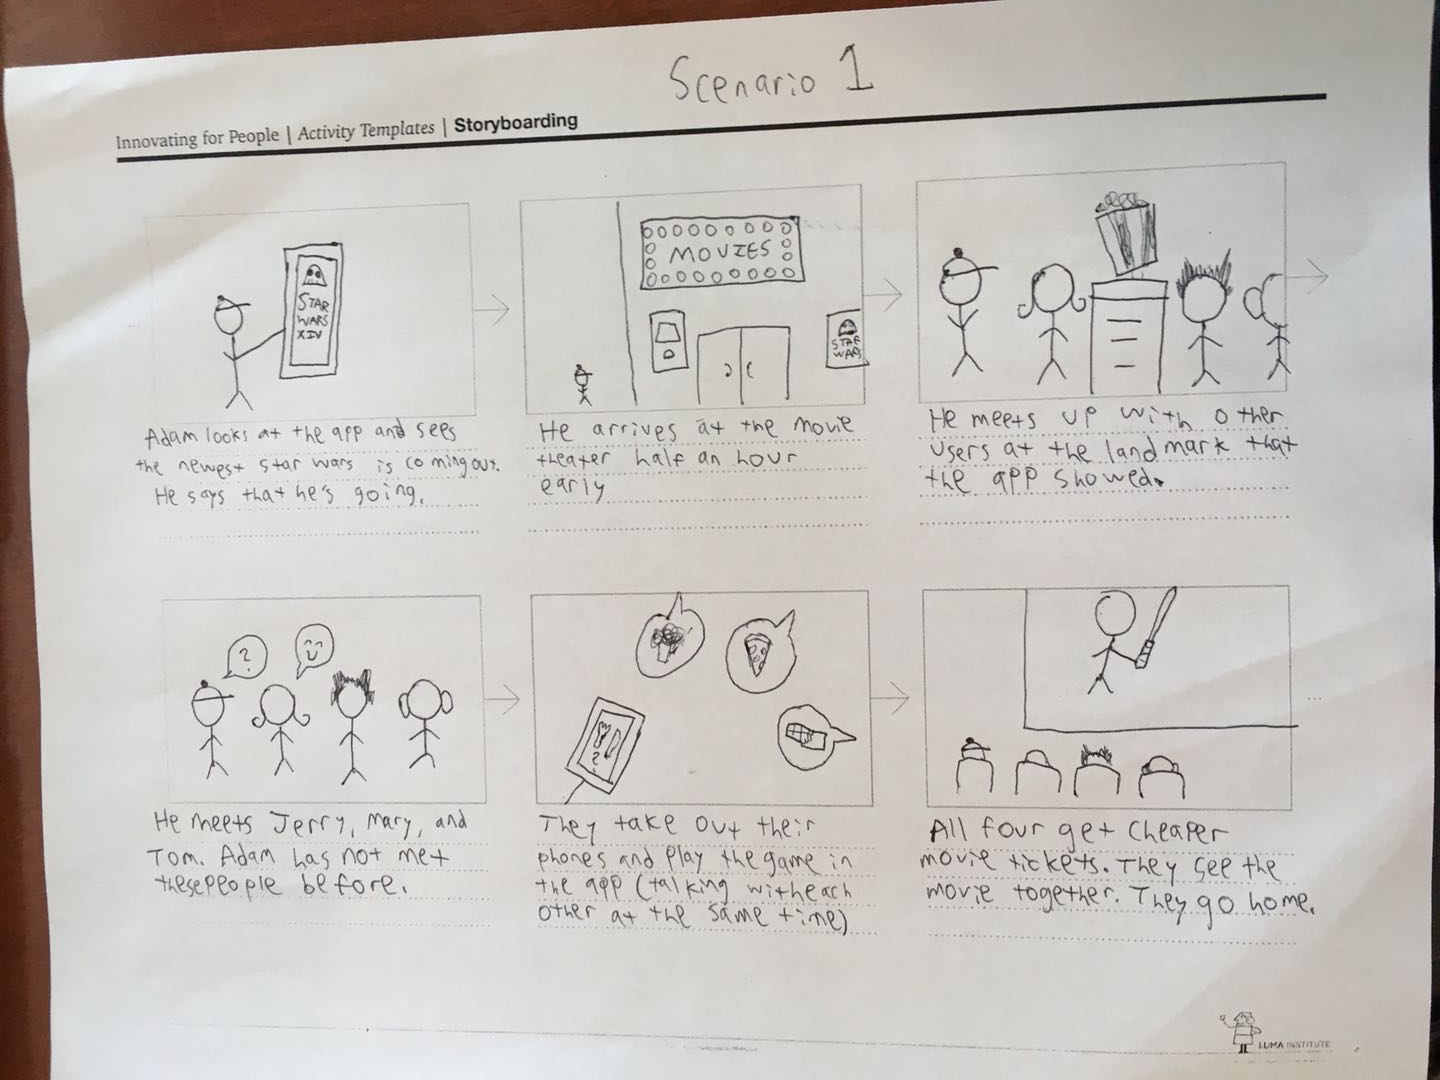 Scenario 1
Innovating for People | Activity Templates | Storyboarding
STAR
WARS
XIV
Adam looks at the app and sees
the newest star wars is coming out.
He says that he's going.
MOVIES
STAR
WARS
He arrives at the movie
theater half an hour
early
He meets up with other
users at the landmark that
the app showed.
?
He meets Jerry, Mary, and
Tom. Adam has not met
these people before.
?
They take out their
phones and play the game in
the app (talking with each
other at the same time)
All four get cheaper
movie tickets. They see the
movie together. They go home.
...
LUMA INSTITUTE